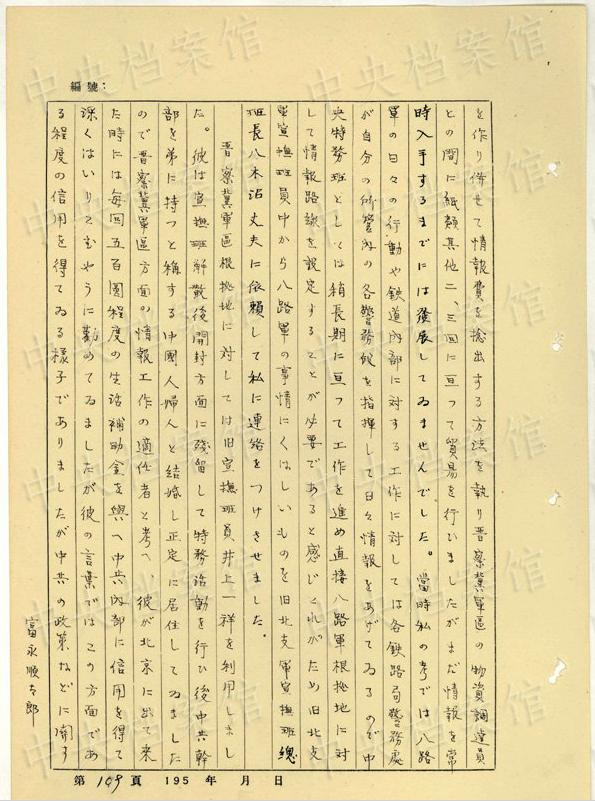 編號:
を作り併せて情報費を捻出する方法を執り晋察冀軍區の物資調達員
との間に紙類其他二、三回に亘つて貿易を行いましたがまだ情報を常
時入手するまでには發展してゐませんでした。當時私の考では八路
軍の日々の行動や鉄道內部に対する工作に対しては各鉄路局警務處
が自分の所管內の各警務段を指揮して日々情報をあげてゐるので中
央特務班としては稍長期に亘つて工作を進め直接八路軍根拠地に対
して情報路線を設定することが必要であると感じこれがため旧北支
軍宣撫班員中から八路軍の事情にくはしいものを旧北支軍宣撫班總
班長八木沼丈夫に依賴して私に連絡をつけさせました。
晋察冀軍區根拠地に対しては旧宣撫班員井上一祥を利用しまし
た。彼は宣撫班解散後開封方面に残留して特務活動を行ひ後中共幹
部を弟に持つと稱する中國人婦人と結婚し正定に居住してゐました
ので晋察冀軍區方面の情報工作の適任者と考へ 彼が北京に出て来
た時には毎回五百圓程度の生活補助金を與へ中共內部に信用を得て
深くはいりこむやうに勸めてゐましたが彼の言葉ではこの方面であ
る程度の信用を得てゐる様子でありましたが中共の政策などに関す
富永順太郎
第109頁 195 年 月 日
中央档案馆